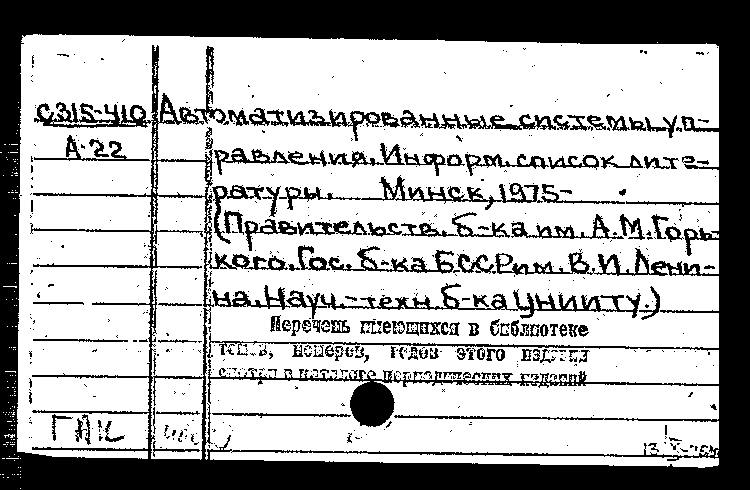 С315-410 Автоматизированные системы уп-
А-22 равления. Информ. список лите-
ратуры. Минск, 1975-
(Правительств. б-ка им. А.М.Горь-
кого. Гос. б-ка БССР им. В.И.Лени-
на. Науч.-техн. б-ка ЦНИИТУ.)
Перечень имеющихся в библиотеке
томов, номеров, годов этого издания
смотри в каталоге периодических изданий
ГАК